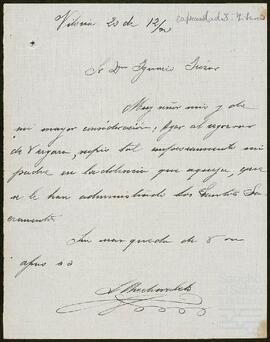 20 de 12/
Sr Dn Ignacio
Muy señor mio y de
mi mayor consideración, Ayer al regresar
de Vergara, sufrio tal empeoramiento mi
padre en la dolencia que aqueja, que
se le han administrado los Santos Sa-
cramentos.
Sin mas queda de V su
afmo s s